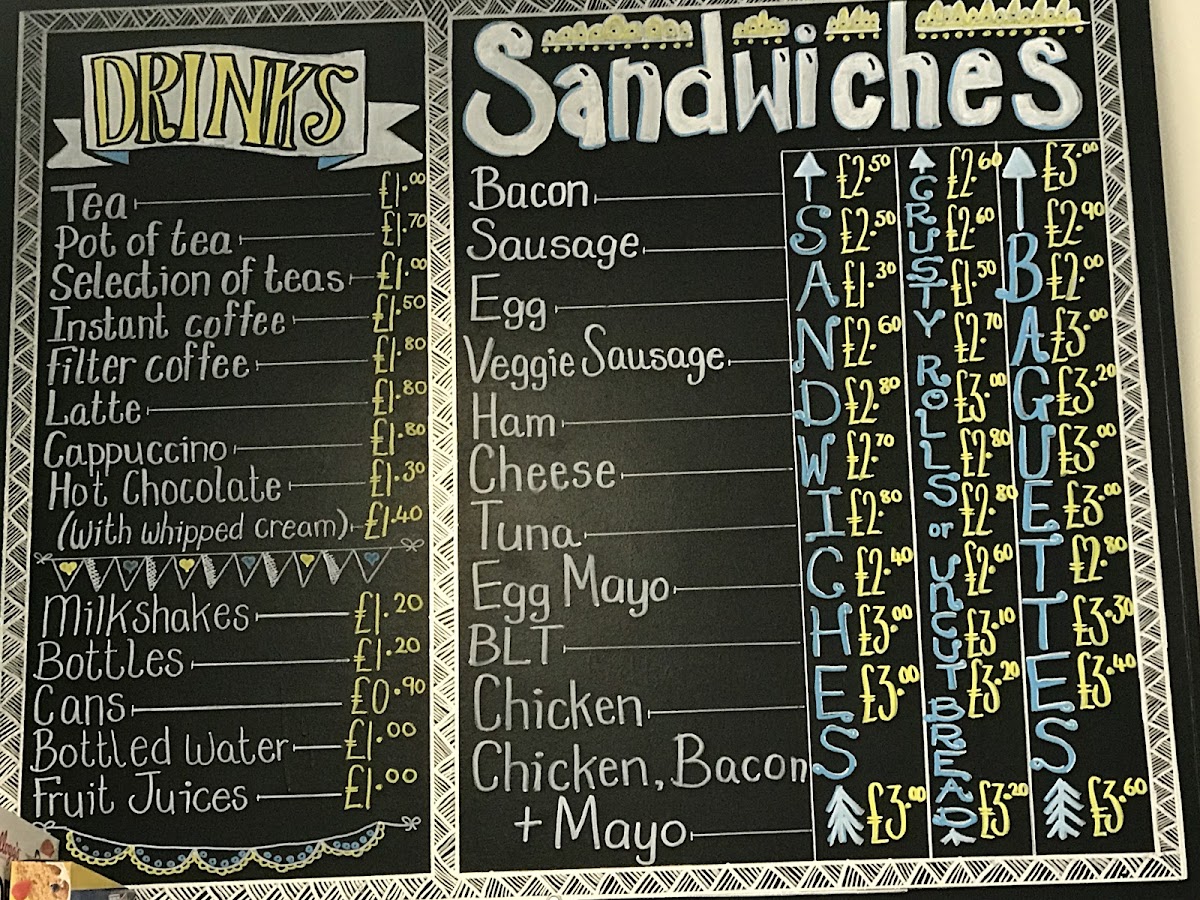 DRINKS
Tea £1.00
Pot of tea £1.70
Selection of teas £1.00
Instant coffee £1.50
Filter coffee £1.80
Latte £1.80
Cappuccino £1.80
Hot Chocolate £1.30
(With whipped cream) £1.40
Milkshakes £1.20
Bottles £1.20
Cans £0.90
Bottled Water £1.00
Fruit Juices £1.00
Sandwiches
SANDWICHES
CRUSTY ROLLS or UNCUT BREAD
BAGUETTES
Bacon £2.50 £2.60 £3.00
Sausage £2.50 £2.60 £2.90
Egg £1.30 £1.50 £2.00
Veggie Sausage £2.60 £2.70 £3.00
Ham £2.80 £3.00 £3.20
Cheese £2.70 £2.80 £3.00
Tuna £2.80 £2.80 £3.00
Egg Mayo £2.40 £2.60 £2.80
BLT £3.00 £3.10 £3.30
Chicken £3.00 £3.20 £3.40
Chicken, Bacon
+ Mayo £3.00 £3.20 £3.60